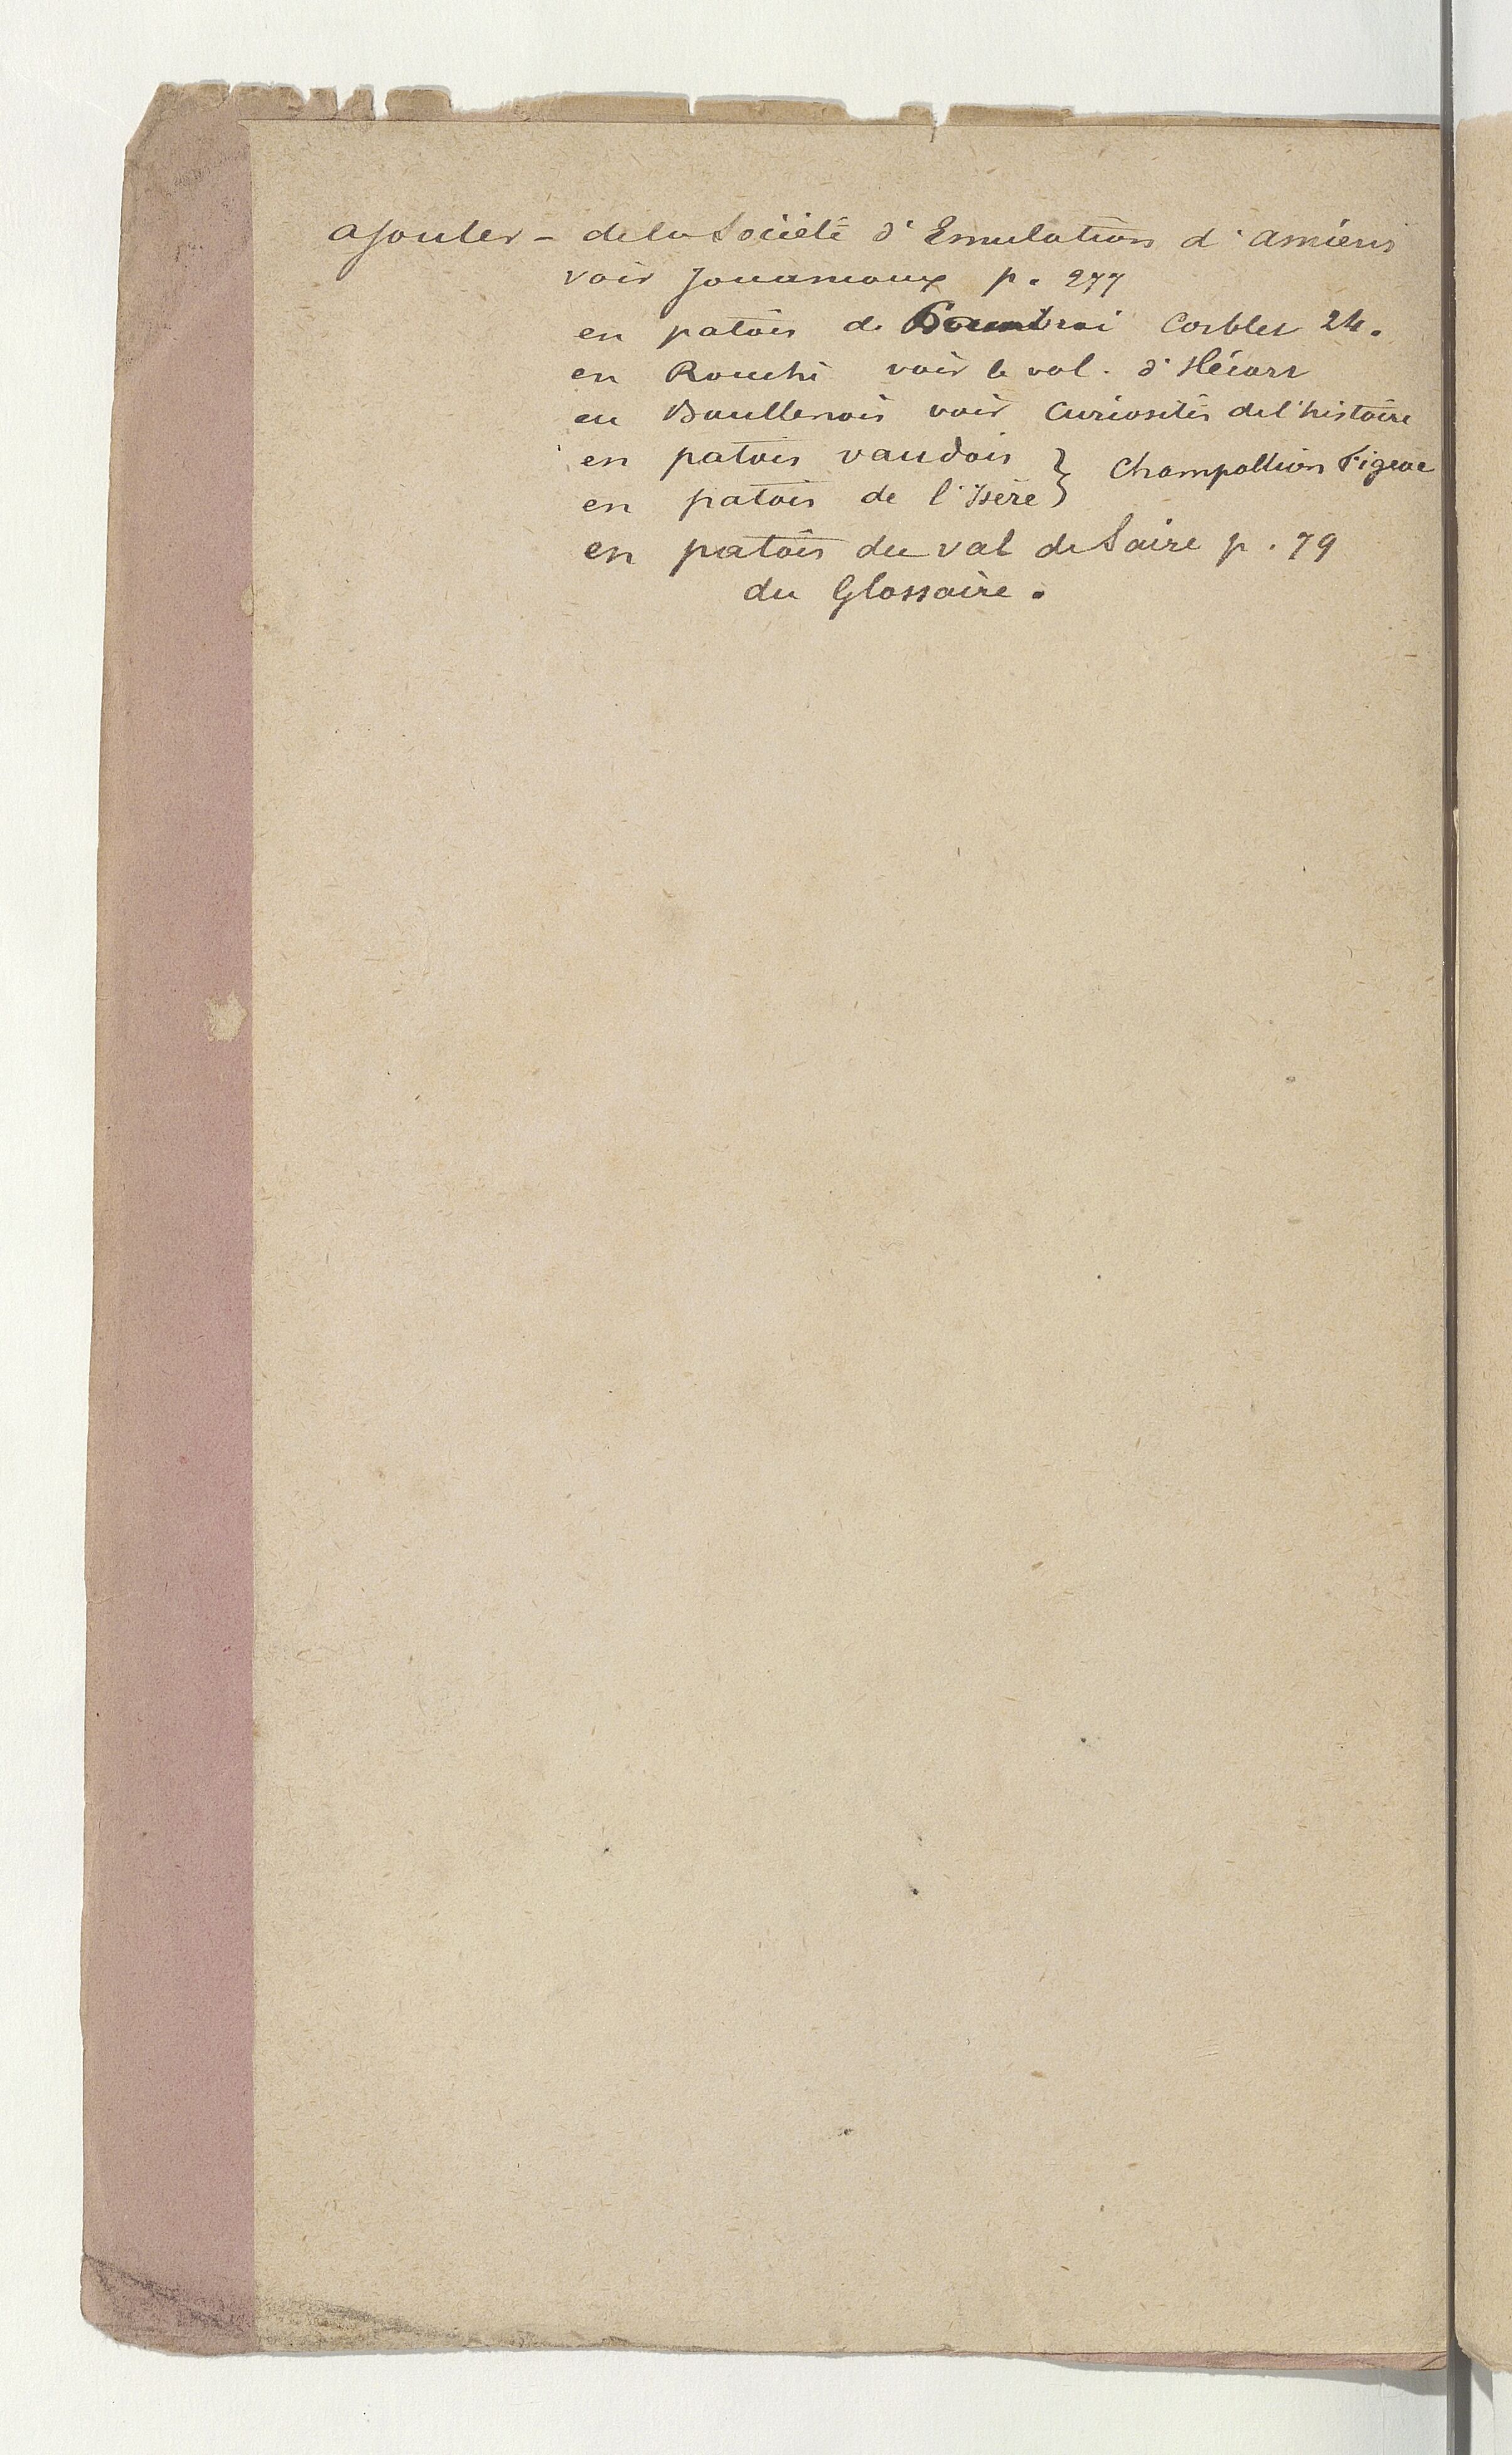 ajouter - de la Société d'Emulation d'Amiens
voir Jouancoux p. 277
en patois de Corblet 24.
en Rouchi voir le vol. d'Hécart
en Doullenois voir Curiosités de l'histoire
en patois vaudois } Champollion Figeac
en patois de l'Isère }
en patois du val de Saire p. 79
du Glossaire.